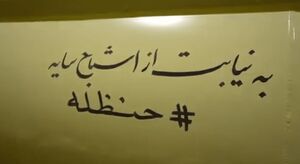 به نیابت از اشباح سایه
#حنظله